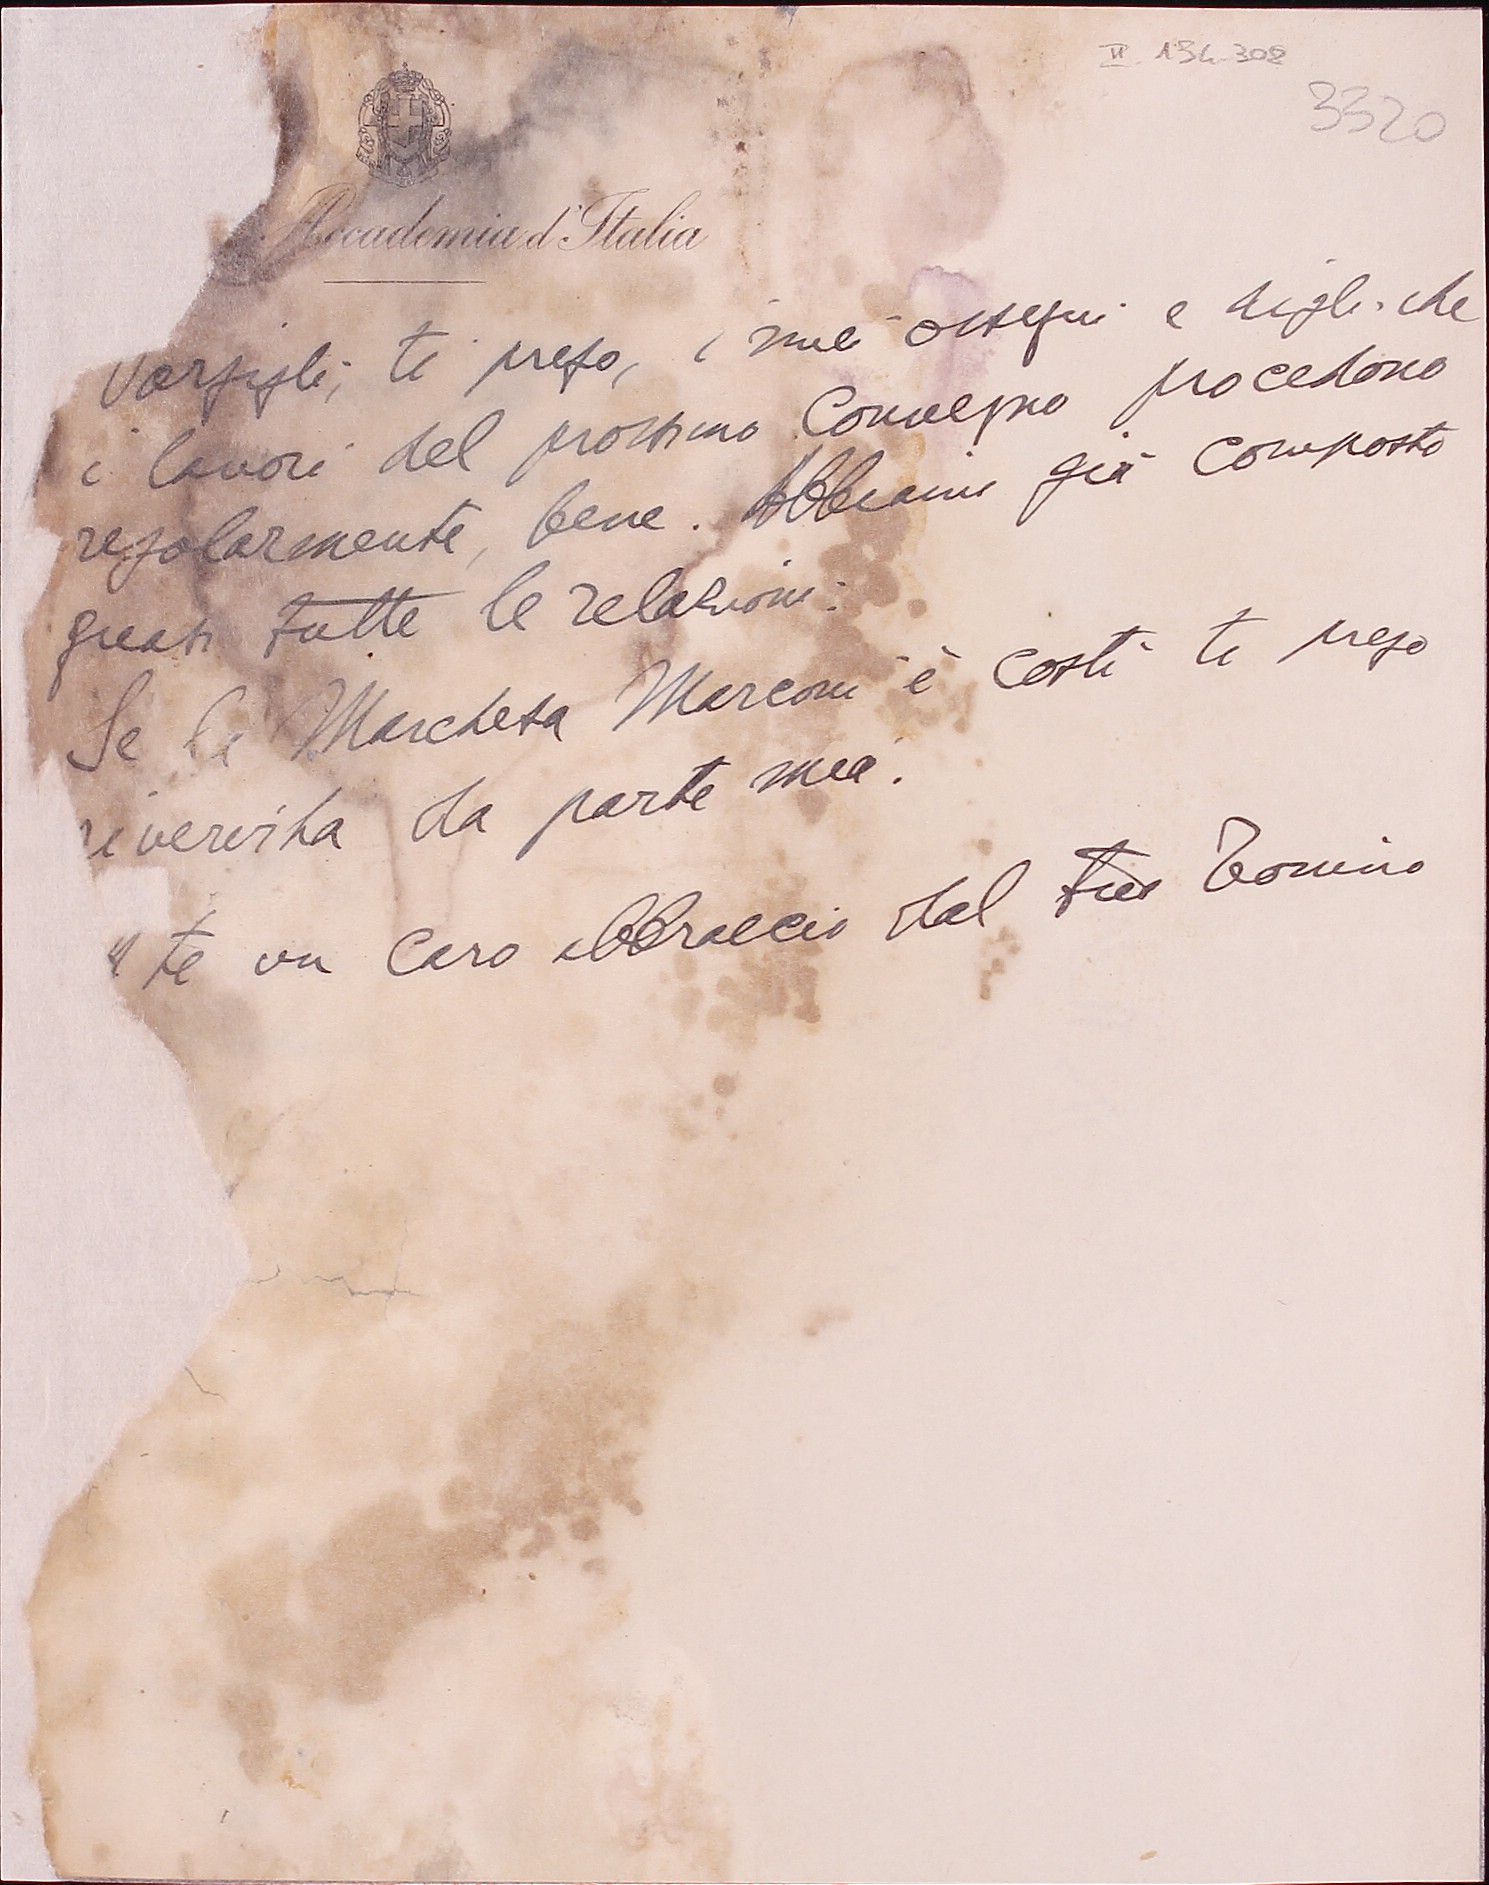 II. 134.308
3320
Accademia d'Italia
Porgigli, ti prego, i miei ossequi e digli che
i lavori del prossimo Convegno procedono
regolarmente, bene. Abbiamo già composto
quasi tutte le relazioni.
Se la Marchesa Marconi è costì ti prego
riverirla da parte mia.
A te un caro abbraccio dal tuo Tonino